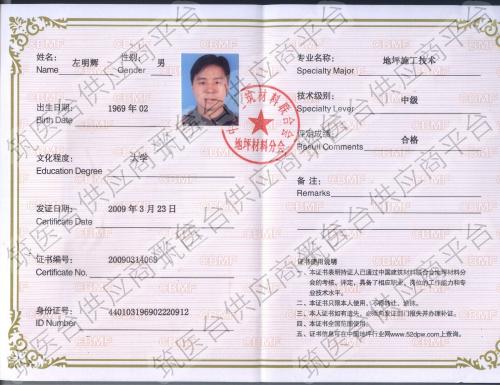 姓名: 左明辉 性别: 男
Name Gender
出生日期: 1969 年 02
Birth Date
文化程度: 大学
Education Degree
发证日期: 2009 年 3 月 23 日
Certificate Date
证书编号: 20090314063
Certificate No.
身份证号: 440103196902220912
ID Number
专业名称: 地坪施工技术
Specialty Major
技术级别: 中级
Specialty Lever
评定成绩: 合格
Result Comments
备 注:
Remarks
地坪材料分会
证书使用说明
一、本证书表明持证人已通过中国建筑材料联合会地坪材料分
会的考核、评定,具备了相应职业、岗位的工作能力和专
业技术水平。
二、本证书只限本人使用,不得转让、涂改。
三、本人证书如有遗失,必须向发证部门报失并办理补证。
四、本证书全国范围使用。
五、证书信息可在中国地坪行业网www.52dpw.com上查询。
CBMF
筑医台供应商平台